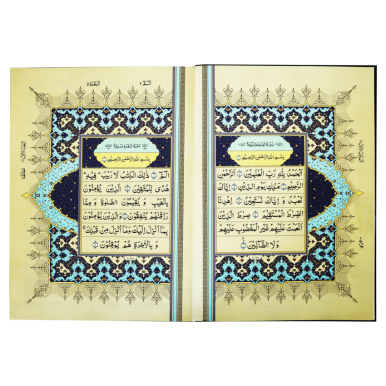 بِسْمِ اللّٰهِ الرَّحْمٰنِ الرَّحِيمِ
اَلْحَمْدُ لِلّٰهِ رَبِّ الْعَالَمِينَ ۝ اَلرَّحْمٰنِ
الرَّحِيمِ ۝ مَالِكِ يَوْمِ الدِّينِ ۝ اِيَّاكَ
نَعْبُدُ وَ اِيَّاكَ نَسْتَعِينُ ۝ اِهْدِنَا
الصِّرَاطَ الْمُسْتَقِيمَ ۝ صِرَاطَ الَّذِينَ
اَنْعَمْتَ عَلَيْهِمْ غَيْرِ الْمَغْضُوبِ عَلَيْهِمْ
وَ لَا الضَّالِّينَ ۝
بِسْمِ اللّٰهِ الرَّحْمٰنِ الرَّحِيمِ
الٓمٓ ۝ ذٰلِكَ الْكِتَابُ لَا رَيْبَ فِيهِ
هُدًى لِلْمُتَّقِينَ ۝ اَلَّذِينَ يُؤْمِنُونَ
بِالْغَيْبِ وَ يُقِيمُونَ الصَّلٰوةَ وَ مِمَّا
رَزَقْنَاهُمْ يُنْفِقُونَ ۝ وَالَّذِينَ يُؤْمِنُونَ
بِمَا اُنْزِلَ اِلَيْكَ وَمَا اُنْزِلَ مِنْ قَبْلِكَ
وَ بِالْاٰخِرَةِ هُمْ يُوقِنُونَ ۝